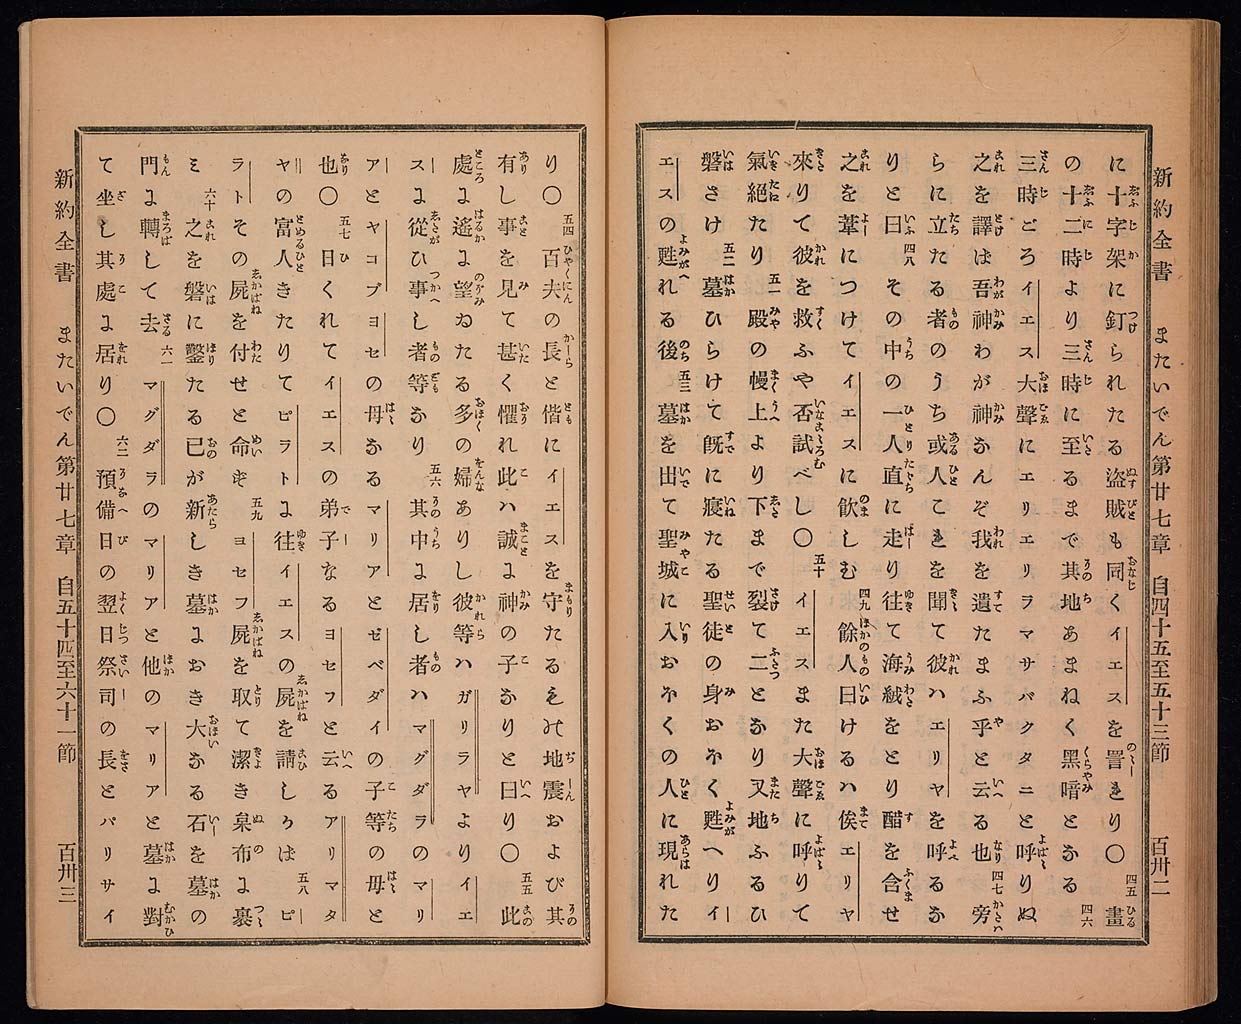 新約全書　またいでん第廿七章　自四十五至五十三節　百卅二
に十字架に釘られたる盜賊も同くイエスを詈れり〇四五晝
の十二時より三時に至るまで其地あまねく黑暗となる四六
三時ごろイエス大聲にエリエリラマサバクタニと呼りぬ
之を譯は吾神わが神なんぞ我を遺たまふ乎と云る也四七旁
らに立たる者のうち或人これを聞て彼ハエリヤを呼るな
りと曰四八その中の一人直に走り往て海絨をとり醋を含せ
之を葦につけてイエスに飮しむ四九餘人曰けるハ俟エリヤ
來りて彼を救ふや否試べし〇五十イエスまた大聲に呼りて
氣絕たり五一殿の幔上より下まで裂て二となり又地ふるひ
磐さけ五二墓ひらけて旣に寢たる聖徒の身おほく甦へりイ
エスの甦れる後五三墓を出て聖城に入おほくの人に現れた
り〇五四百夫の長と偕にイエスを守たるもの地震および其
有し事を見て甚く懼れ此ハ誠に神の子なりと曰り〇五五此
處に遙に望ゐたる多の婦ありし彼等ハガリラヤよりイエ
スに從ひ事し者等なり五六其中に居し者ハマグダラのマリ
アとヤコブヨセの母なるマリアとゼベダイの子等の母と
也〇五七日くれてイエスの弟子なるヨセフと云るアリマタ
ヤの富人きたりてピラトに往イエスの屍を請しかば五八ピ
ラトその屍を付せと命ず五九ヨセフ屍を取て潔き枲布に裹
ミ六十之を磐に鑿たる已が新しき墓におき大なる石を墓の
門に轉して去六一マグダラのマリアと他のマリアと墓に對
て坐し其處に居り〇六二預備日の翌日祭司の長とパリサイ
新約全書　またいでん第廿七章　自五十四至六十一節　百卅三